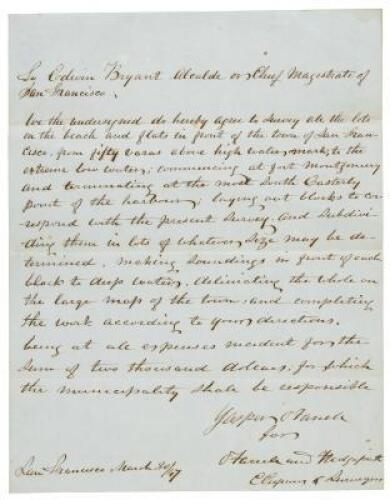 To Edwin Bryant Alcalde or Chief Magistrate of
San Francisco,
We the undersigned do hereby agree to survey all the lots
on the beach and flats in front of the town of San Fran-
cisco, from fifty varas above high water mark, to the
extreme low water; commencing at fort Montgomery
and terminating at the most South Easterly
point of the harbour; laying out blocks to cor-
respond with the present survey, and subdivi-
ding them in lots of whatever size may be de-
termined, making soundings in front of each
block to deep water, delineating the whole on
the large map of the town: and completing
the work according to your directions.
being at all expenses incident for the
sum of two thousand dollars, for which
the municipality shall be responsible
Jasper O'Farrell
for
O'Farrell and
San Francisco March 20/47
& Surveyors